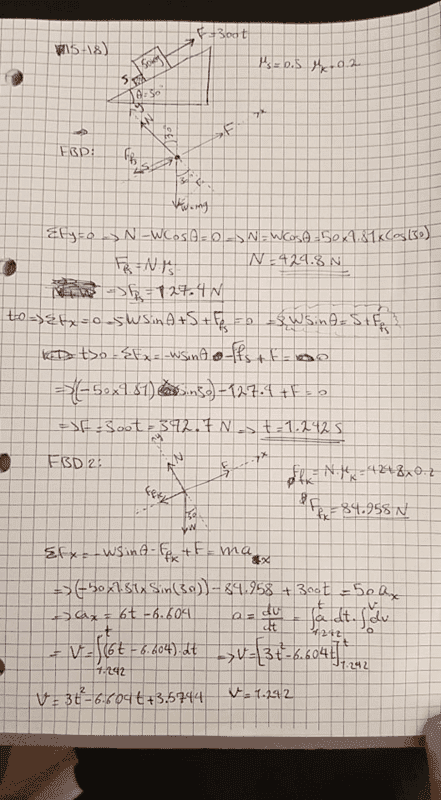 15-18)
F=300t
50kg
S
θ=30°
μs=0.3 μk=0.2
FBD:
y
N
30
F
x
Ffs
S
30
W=mg
ΣFy=0 → N-WCosθ=0 → N=WCosθ=50x9.81xCos(30)
Ffs=Nμs
N=424.8 N
⇒ Ffs=127.4 N
t=0 ⇒ ΣFx=0 → WSinθ+S+Ffs=0 = WSinθ=S+Ffs
t>0 = ΣFx=-wsinθ-Ffs+F=0
⇒ (-50x9.81) sin30)-127.4+F=0
⇒ F=300t=372.7 N ⇒ t=1.242 S
FBD 2:
y
N
F
x
Ffk
30
W
Ffk=N.μk=424.8x0.2
Ffk=84.958 N
ΣFx=-WSinθ-Ffk+F=max
⇒ (-50x9.81xSin(30))-84.958+300t=50ax
⇒ ax=6t-6.604
a=dv/dt=∫1.242 t a dt.∫0 V dv
=V=∫1.242 t (6t-6.604).dt
⇒ V=[3t²-6.604t]1.242 t
V=3t²-6.604t+3.5744
V=1.242